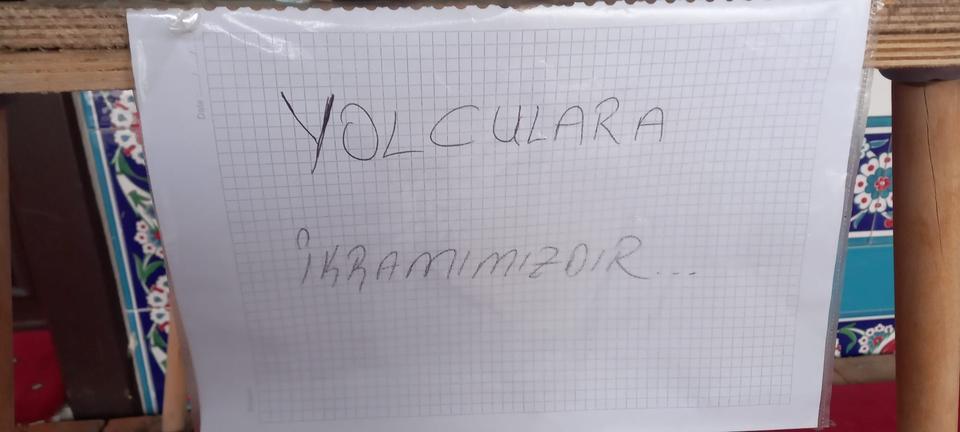 Date
YOLCULARA
İKRAMIMIZDIR...